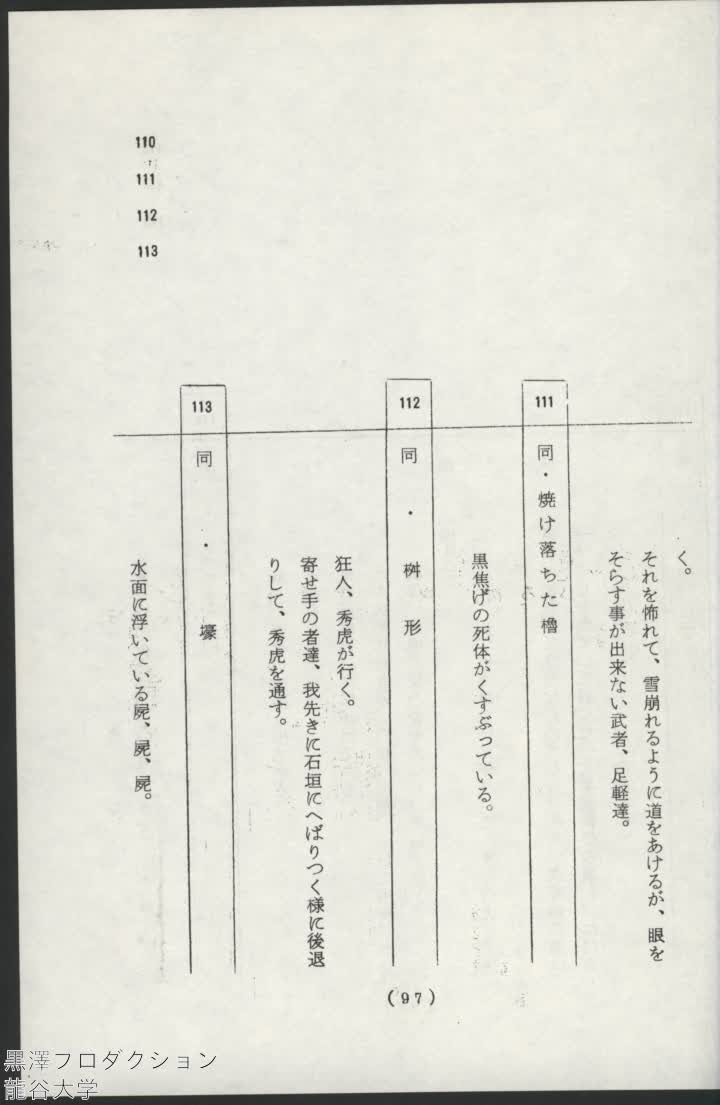 110
111
112
113
く。
それを怖れて、雪崩れるように道をあけるが、眼を
そらす事が出来ない武者、足軽達。
111 同・焼け落ちた櫓
黒焦げの死体がくすぶっている。
112 同・桝形
狂人、秀虎が行く。
寄せ手の者達、我先きに石垣にへばりつく様に後退
りして、秀虎を通す。
113 同・壕
水面に浮いている屍、屍、屍。
(97)
黒澤プロダクション
龍谷大学